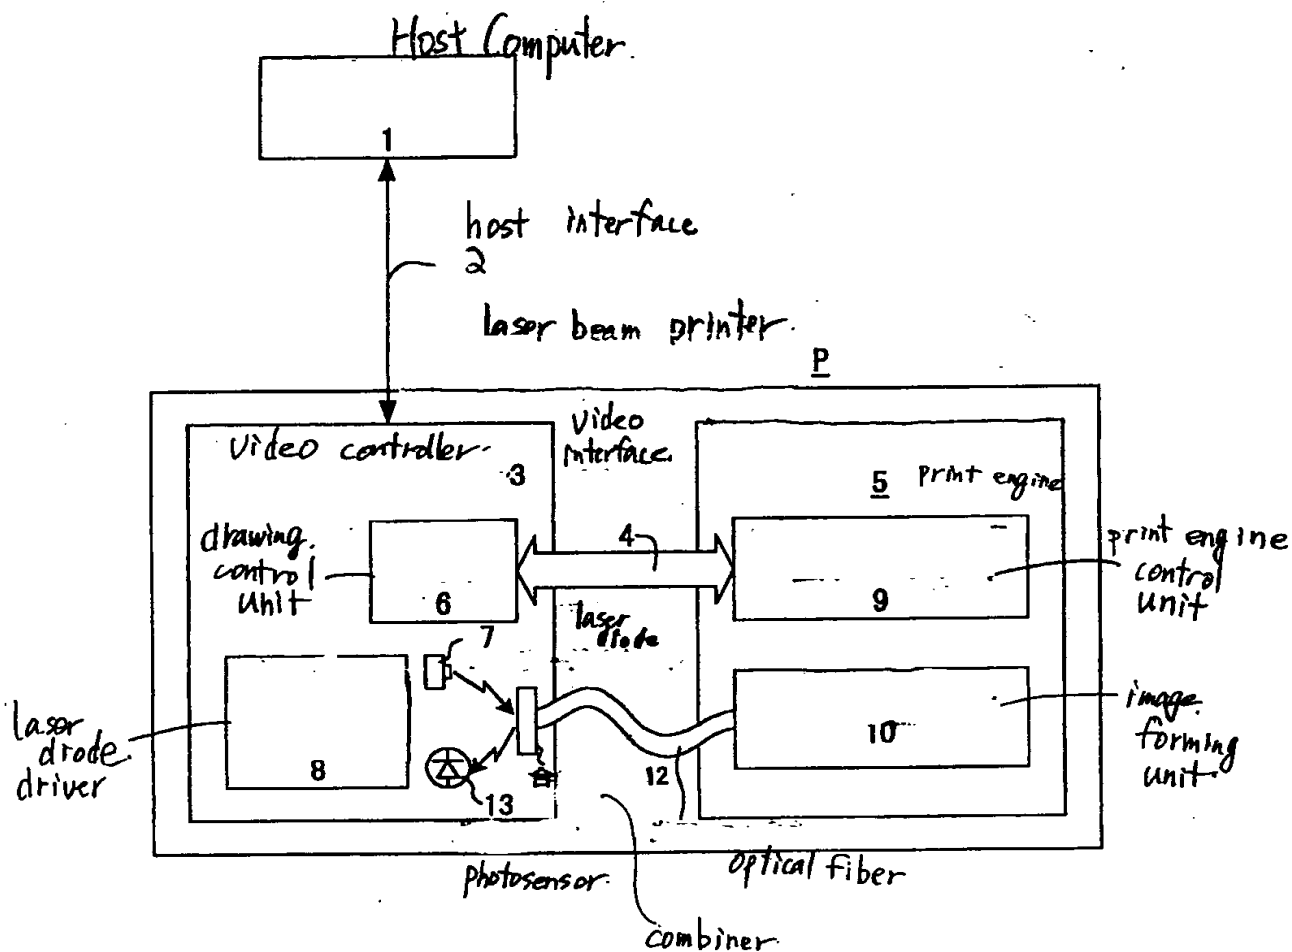 Host Computer.
1
host interface
2
laser beam printer.
P
Video controller.
3
Video
interface.
5 print engine
drawing.
control
unit
6
4
9
print engine
control
unit
7
laser
diode
laser
diode
driver
8
13
12
10
image.
forming
unit.
photosensor.
optical fiber
combiner.